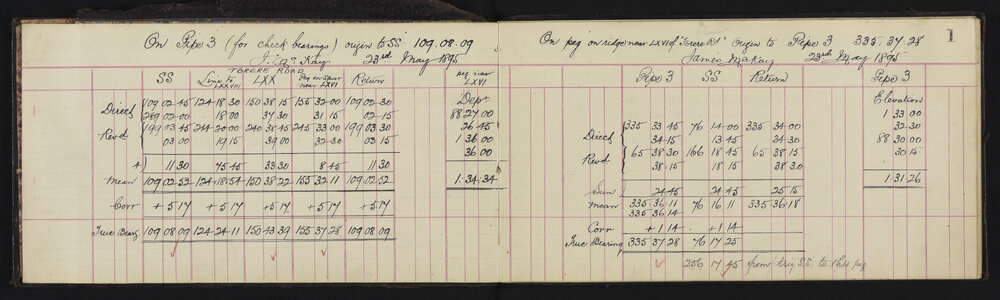 On Pipe 3 (for check bearings) origin to SS 109.08.09
23rd May 1895
TORERE ROAD
SS Line to LXXVII LXX Peg on Spur near LXVI Return peg near LXVI
Depn
Direct 109 02 45 124 18 30 150 38 15 155 32 00 109 02 30 88 27 00
289 02 00 18 00 37 30 31 15 02 15 26 45
Revd 199 03 45 214 20 00 240 38 45 245 33 00 199 03 30 1 36 00
03 00 19 15 39 00 32 30 03 15 36 00
4) 11 30 75 45 33 30 8 45 11 30
Mean 109 02 52 124 18 54 150 38 22 155 32 11 109 02 52 1 34 34
Corr + 5 17 + 5 17 + 5 17 + 5 17 + 5 17
True Bearg 109 08 09 124 24 11 150 43 39 155 37 28 109 08 09
On peg on ridge near LXVI of "Torere Rd" origin to Pipe 3 335.37.28
1
James Mackay 23rd May 1895
Pipe 3 SS Return Pipe 3
Elevation
1 33 00
32 30
Direct 335 33 45 76 14 00 335 34 00 88 30 00
34 15 13 45 34 30 30 15
Revd 65 38 30 166 18 45 65 38 15
38 15 18 15 38 30 1 31 26
Sum 24 45 24 45 25 15
Mean 335 36 11 76 16 11 335 36 18
335 36 14
Corr + 1 14 + 1 14
True Bearing 335 37 28 76 17 25
256 17 45 from trig S.S. to this peg